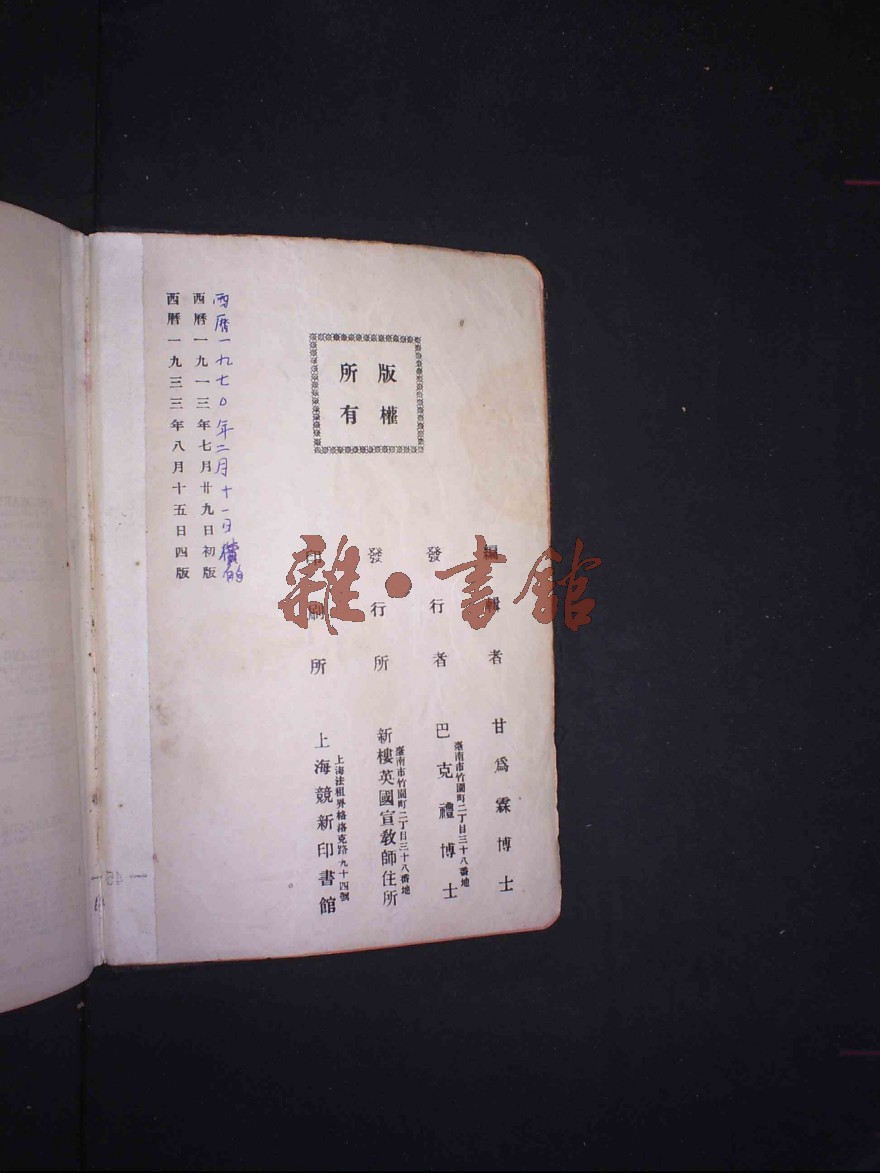 版權
所有
編輯者 甘爲霖博士
發行者 臺南市竹園町二丁目三十八番地
巴克禮博士
發行所 臺南市竹園町二丁目三十八番地
新樓英國宣教師住所
印刷所 上海法租界格洛克路九十四號
上海競新印書館
西曆一九七〇年二月十一日 的
西曆一九一三年七月廿九日初版
西曆一九三三年八月十五日四版
雜·書館